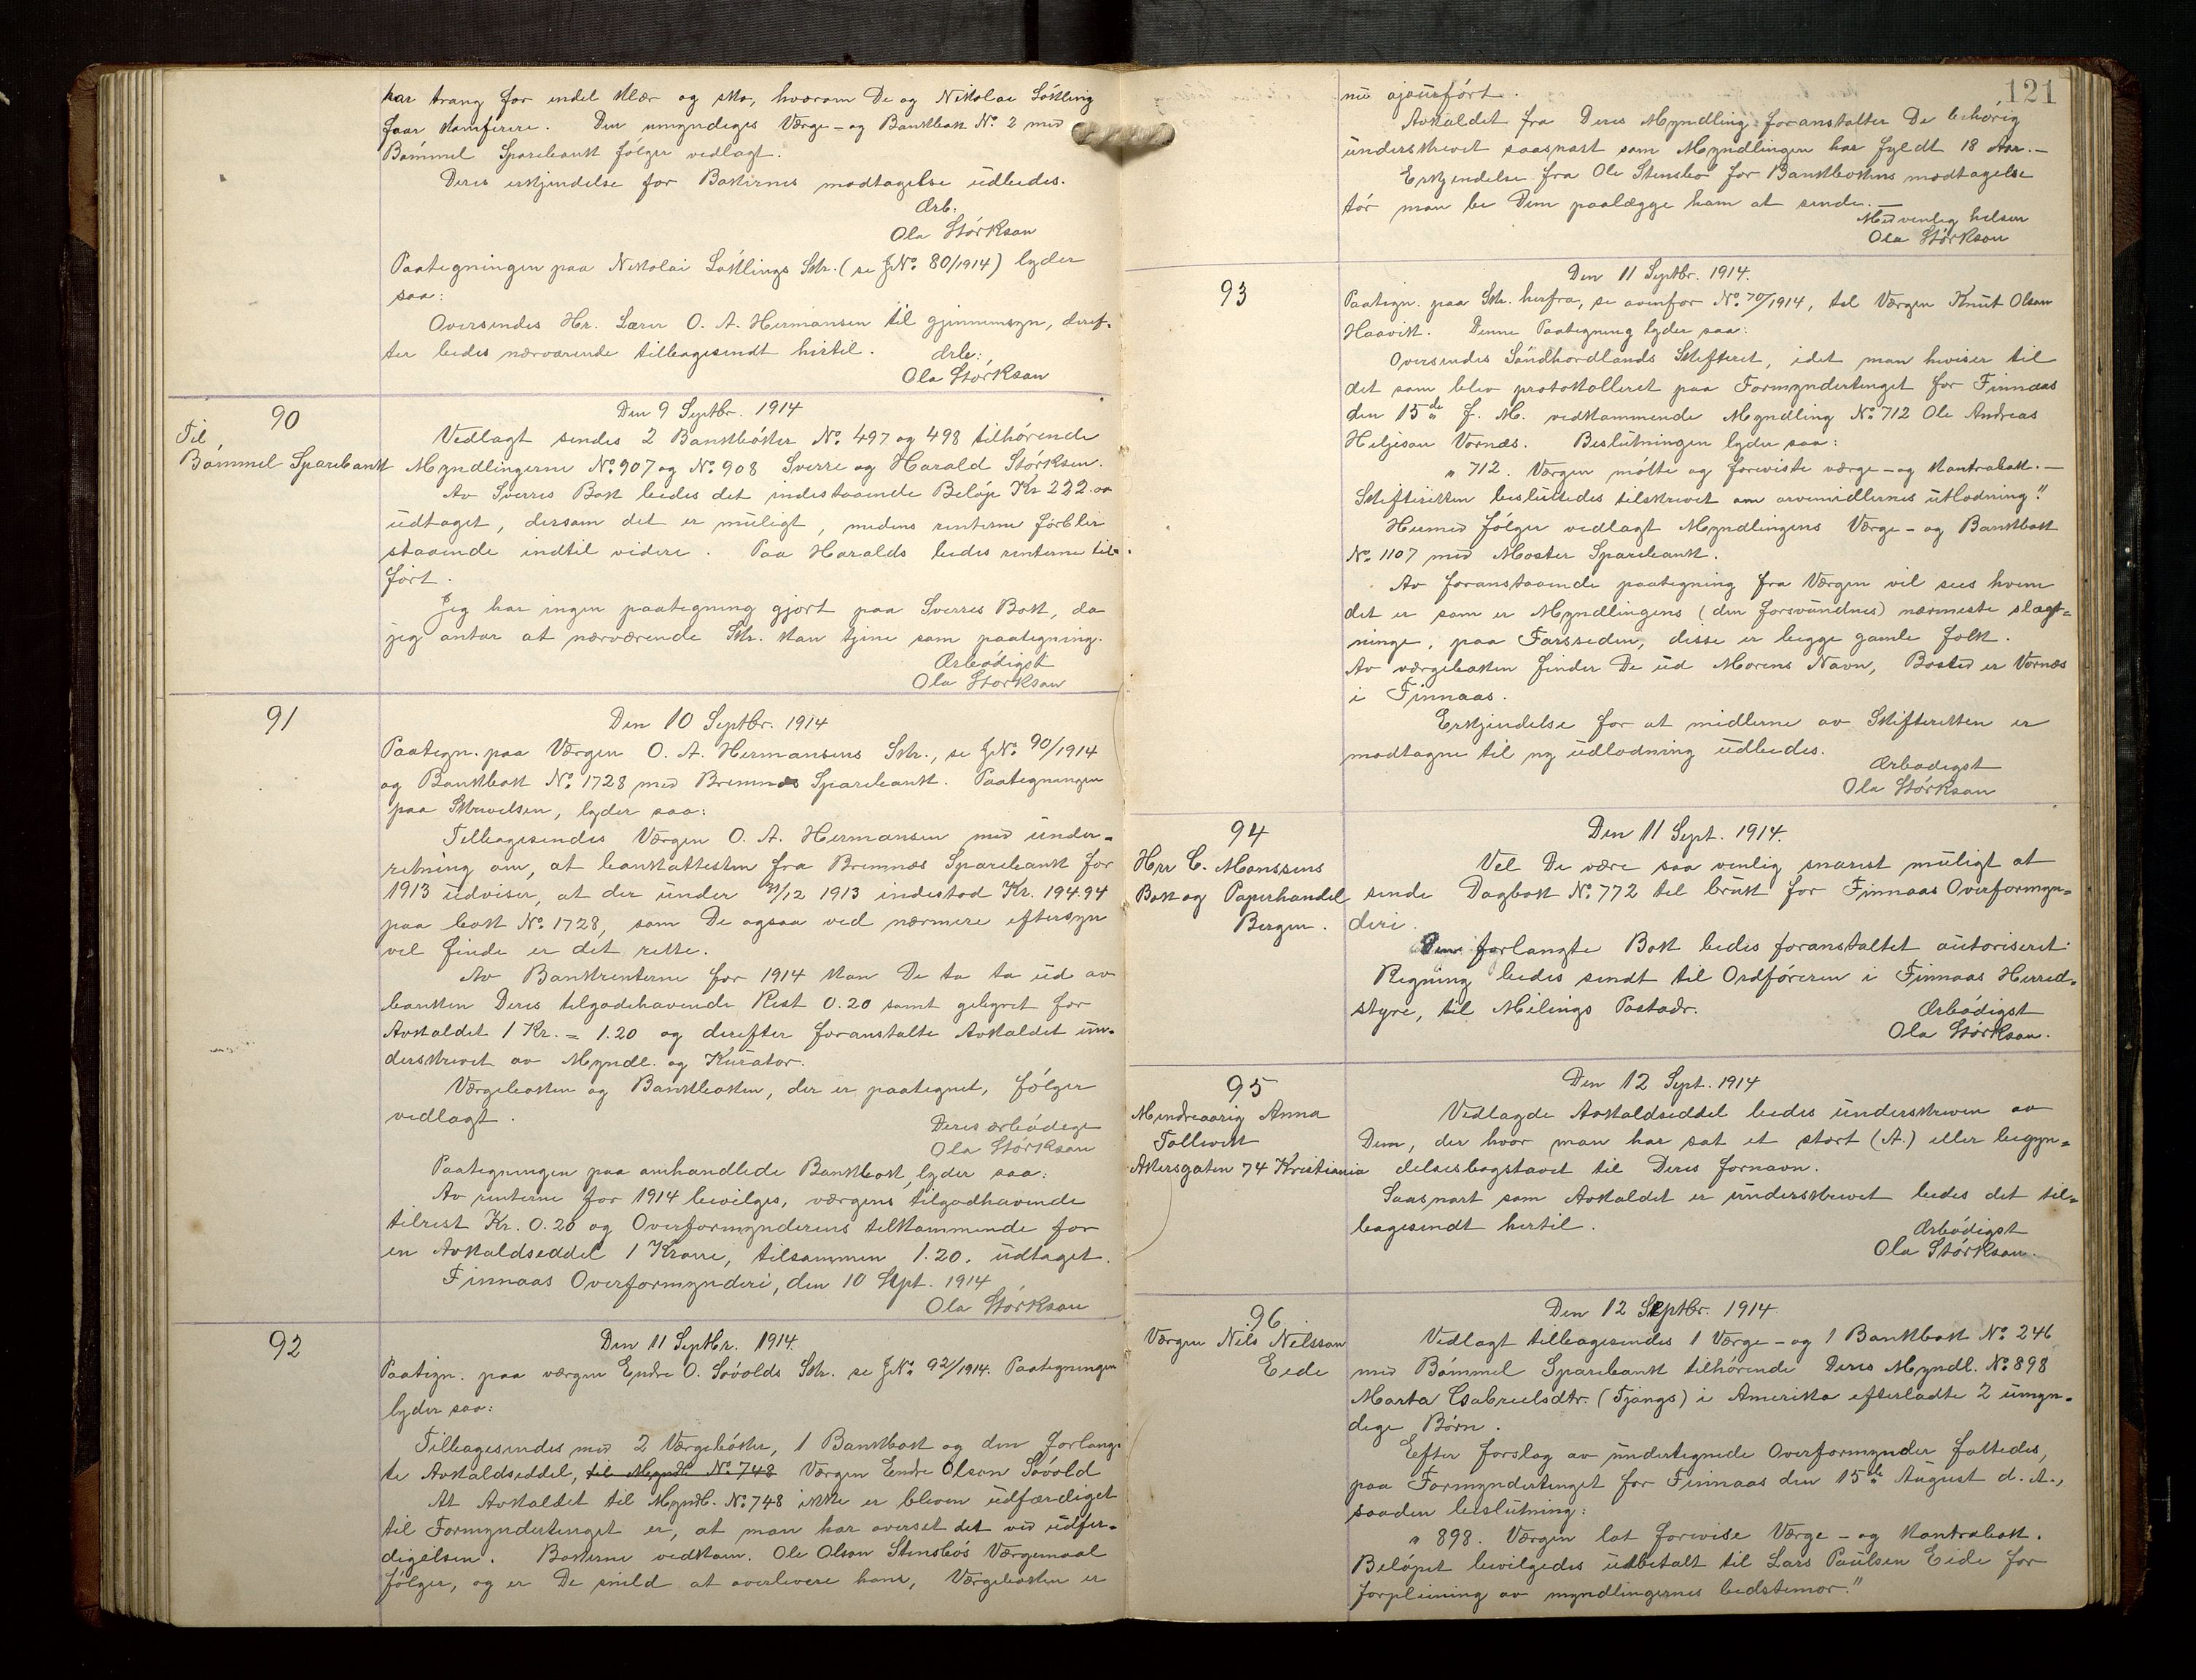 har trang for endel klær og sko, hvorom De og Nikolai Løkling
faar konferere. Den umyndiges Værge- og Bankbok No. 2 med
Bømmel Sparebank følger vedlagt.
Deres erkjendelse for Bøkernes modtagelse udbedes.
Ærb:
Ola Størkson
Paategningen paa Nikolai Løklings Skr. (se J.No. 80/1914) lyder
saa:
Oversendes Hr. Lærer O. A. Hermansen til gjennemsyn, deref-
ter bedes nærværende tilbagesendt hertil.
Ærb:
Ola Størkson
90
Til
Bømmel Sparebank
Den 9 Septbr. 1914
Vedlagt sendes 2 Bankbøker No. 497 og 498 tilhørende
Myndlingerne No. 907 og No. 908 Sverre og Harald Størksen.
Av Sverres Bok bedes det indestaaende Beløp Kr 222.00
udtaget, dersom det er muligt, medens renterne forblir
staaende indtil videre. Paa Haralds bedes renterne til-
ført.
Jeg har ingen paategning gjort paa Sverres Bok, da
jeg antar at nærværende Skr. kan tjene som paategning.
Ærbødigst
Ola Størkson
91
Den 10 Septbr. 1914
Paategn. paa Værgen O. A. Hermansens Skr., se J.No. 90/1914
og Bankbok No. 1728 med Bremnes Sparebank. Paategningen
paa Skrivelsen, lyder saa:
Tilbagesendes Værgen O. A. Hermansen med under-
retning om, at bankattesten fra Bremnæs Sparebank for
1913 udviser, at der under 31/12 1913 indestod Kr. 194.94
paa bok No. 1728, som De ogsaa ved nærmere eftersyn
vil finde er det rette.
Av Bankrenterne for 1914 kan De ta ta ud av
banken Deres tilgodehavende Rest 0.20 samt gebyret for
Avkaldet 1 Kr. = 1.20 og derefter foranstalte Avkaldet un-
derskrevet av Myndl. og Kurator.
Værgeboken og Bankboken, der er paategnet, følger
vedlagt.
Deres ærbødige
Ola Størkson
Paategningen paa omhandlede Bankbok, lyder saa:
Av renterne for 1914 bevilges, værgens tilgodhavende
tilrest Kr. 0.20 og Overformynderens tilkommende for
en Avkaldseddel 1 Krone, tilsammen 1.20. udtaget.
Finnaas Overformynderi, den 10 Sept. 1914
Ola Størkson
92
Den 11 Septbr. 1914.
Paategn. paa værgen Endre O. Søvolds Skr. se J.No. 92/1914. Paategningen
lyder saa:
Tilbagesendes med 2 Værgebøker, 1 Bankbok og den forlang-
te Avkaldseddel, til Myndl. No. 748 Værgen Endre Olsen Søvold
At Avkaldet til Myndl. No. 748 ikke er bleven udfærdiget
til Formyndertinget er, at man har overset det ved udfær-
digelsen. Bøkerne vedkom. Ole Olson Stensbø's Værgemaal
følger, og er De snild at overlevere ham, Værgeboken er
121
nu ajourført.
Avkaldet fra Deres Myndling foranstalter De behørig
underskrevet saasnart som Myndlingen har fyldt 18 Aar.-
Erkjendelse fra Ole Stensbø for Bankbokens modtagelse
tør man be Dem paalægge ham at sende.-
Med venlig hilsen
Ola Størkson
93
Den 11 Septbr. 1914.
Paategn. paa Skr. herfra, se ovenfor No. 70/1914, til Værgen Knut Olson
Haavik. Denne Paategning lyder saa:
Oversendes Søndhordlands Skifteret, idet man henviser til
det som blev protokolleret paa Formyndertinget for Finnaas
den 15de f. M. vedkommende Myndling No. 712 Ole Andreas
Heljeson Vornæs. Beslutningen lyder saa:
„ 712. Værgen møtte og foreviste værge- og kontrabok.-
Skifteretten besluttedes tilskrevet om arvemidlernes utlodning."
Hermed følger vedlagt Myndlingens Værge- og Bankbok
No. 1107 med Moster Sparebank.
Av foranstaaende paategning fra Værgen vil sees hvem
det er som er Myndlingens (den forsvundnes) nærmeste slægt-
ninge, paa Farssiden, disse er begge gamle folk.
Av værgeboken finder De ud Morens Navn, Bosted er Vornæs
i Finnaas.
Erkjendelse for at midlerne av Skifteretten er
modtagne til ny udlodning udbedes.
Ærbødigst
Ola Størkson
94
Hrr C. Monssens
Bok og Papirhandel
Bergen.
Den 11 Sept. 1914.
Vil De være saa venlig snarest muligt at
sende Dagbok No. 772 til bruk for Finnaas Overformyn-
deri.
Den forlangte Bok bedes foranstaltet autoriseret.
Regning bedes sendt til Ordføreren i Finnaas Herred-
styre, til Mælings Postadr.
Ærbødigst
Ola Størkson.
95
Mindreaarig Anna
Follevik
Akersgaten 74 Kristiania
Den 12 Sept. 1914
Vedlagde Avkaldseddel bedes underskreven av
Dem, der hvor man har sat et stort (A.) eller begyn-
delsesbogstavet til Deres fornavn.
Saasnart som Avkaldet er underskrevet bedes det til-
bagesendt hertil.
Ærbødigst
Ola Størkson.
96
Værgen Nils Nilsson
Eide
Den 12 Septbr. 1914
Vedlagt tilbagesendes 1 Værge- og 1 Bankbok No. 246
med Bømmel Sparebank tilhørende Deres Myndl. No. 898
Marta Gabrielsdtr. (Tjongs) i Amerika efterladte 2 umyn-
dige Børn.
Efter forslag av undertegnede Overformynder fattedes,
paa Formyndertinget for Finnaas den 15de August d. A.,
saaden beslutning:
„ 898. Værgen lot forevise Værge- og Kontrabok.
Beløpet bevilgedes utbetalt til Lars Paulsen Eide for
forpleining av myndlingernes bedstemor."